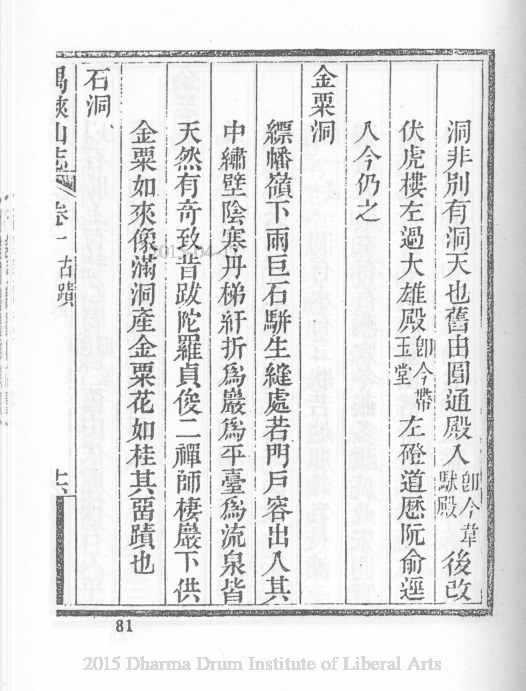 洞非別有洞天也舊由圓通殿入卽今韋馱殿後改
伏虎樓左過大雄殿卽今帶玉堂左磴道歷阮俞逕
入今仍之
金粟洞
縹幡嶺下兩巨石駢生縫處若門戶容出入其
中繡壁陰寒丹梯紆折爲巖爲平臺爲流泉皆
天然有奇致昔跋陀羅貞俊二禪師棲巖下供
金粟如來像滿洞產金粟花如桂其畱蹟也
石洞
卷一 古蹟
81
2015 Dharma Drum Institute of Liberal Arts